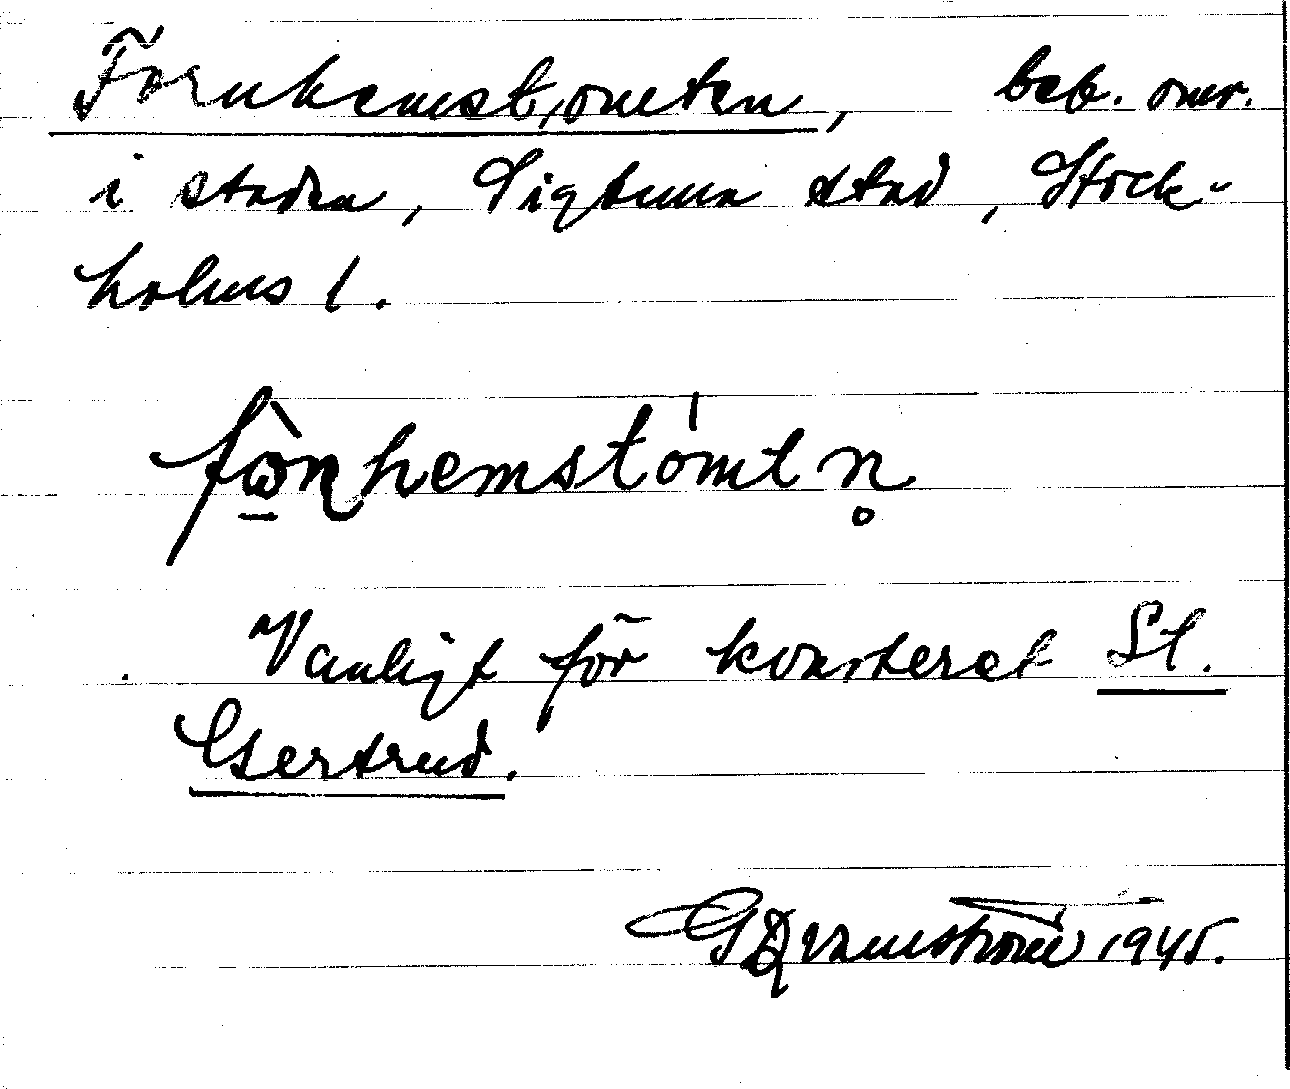 Fornhemstomten, beb. omr.
i staden, Sigtuna stad, Stock-
holms l.
fɷ̱̀ɳhemstómtn̥
Vanligt för kvarteret St.
Gertrud.
G Qvarnström 1945.